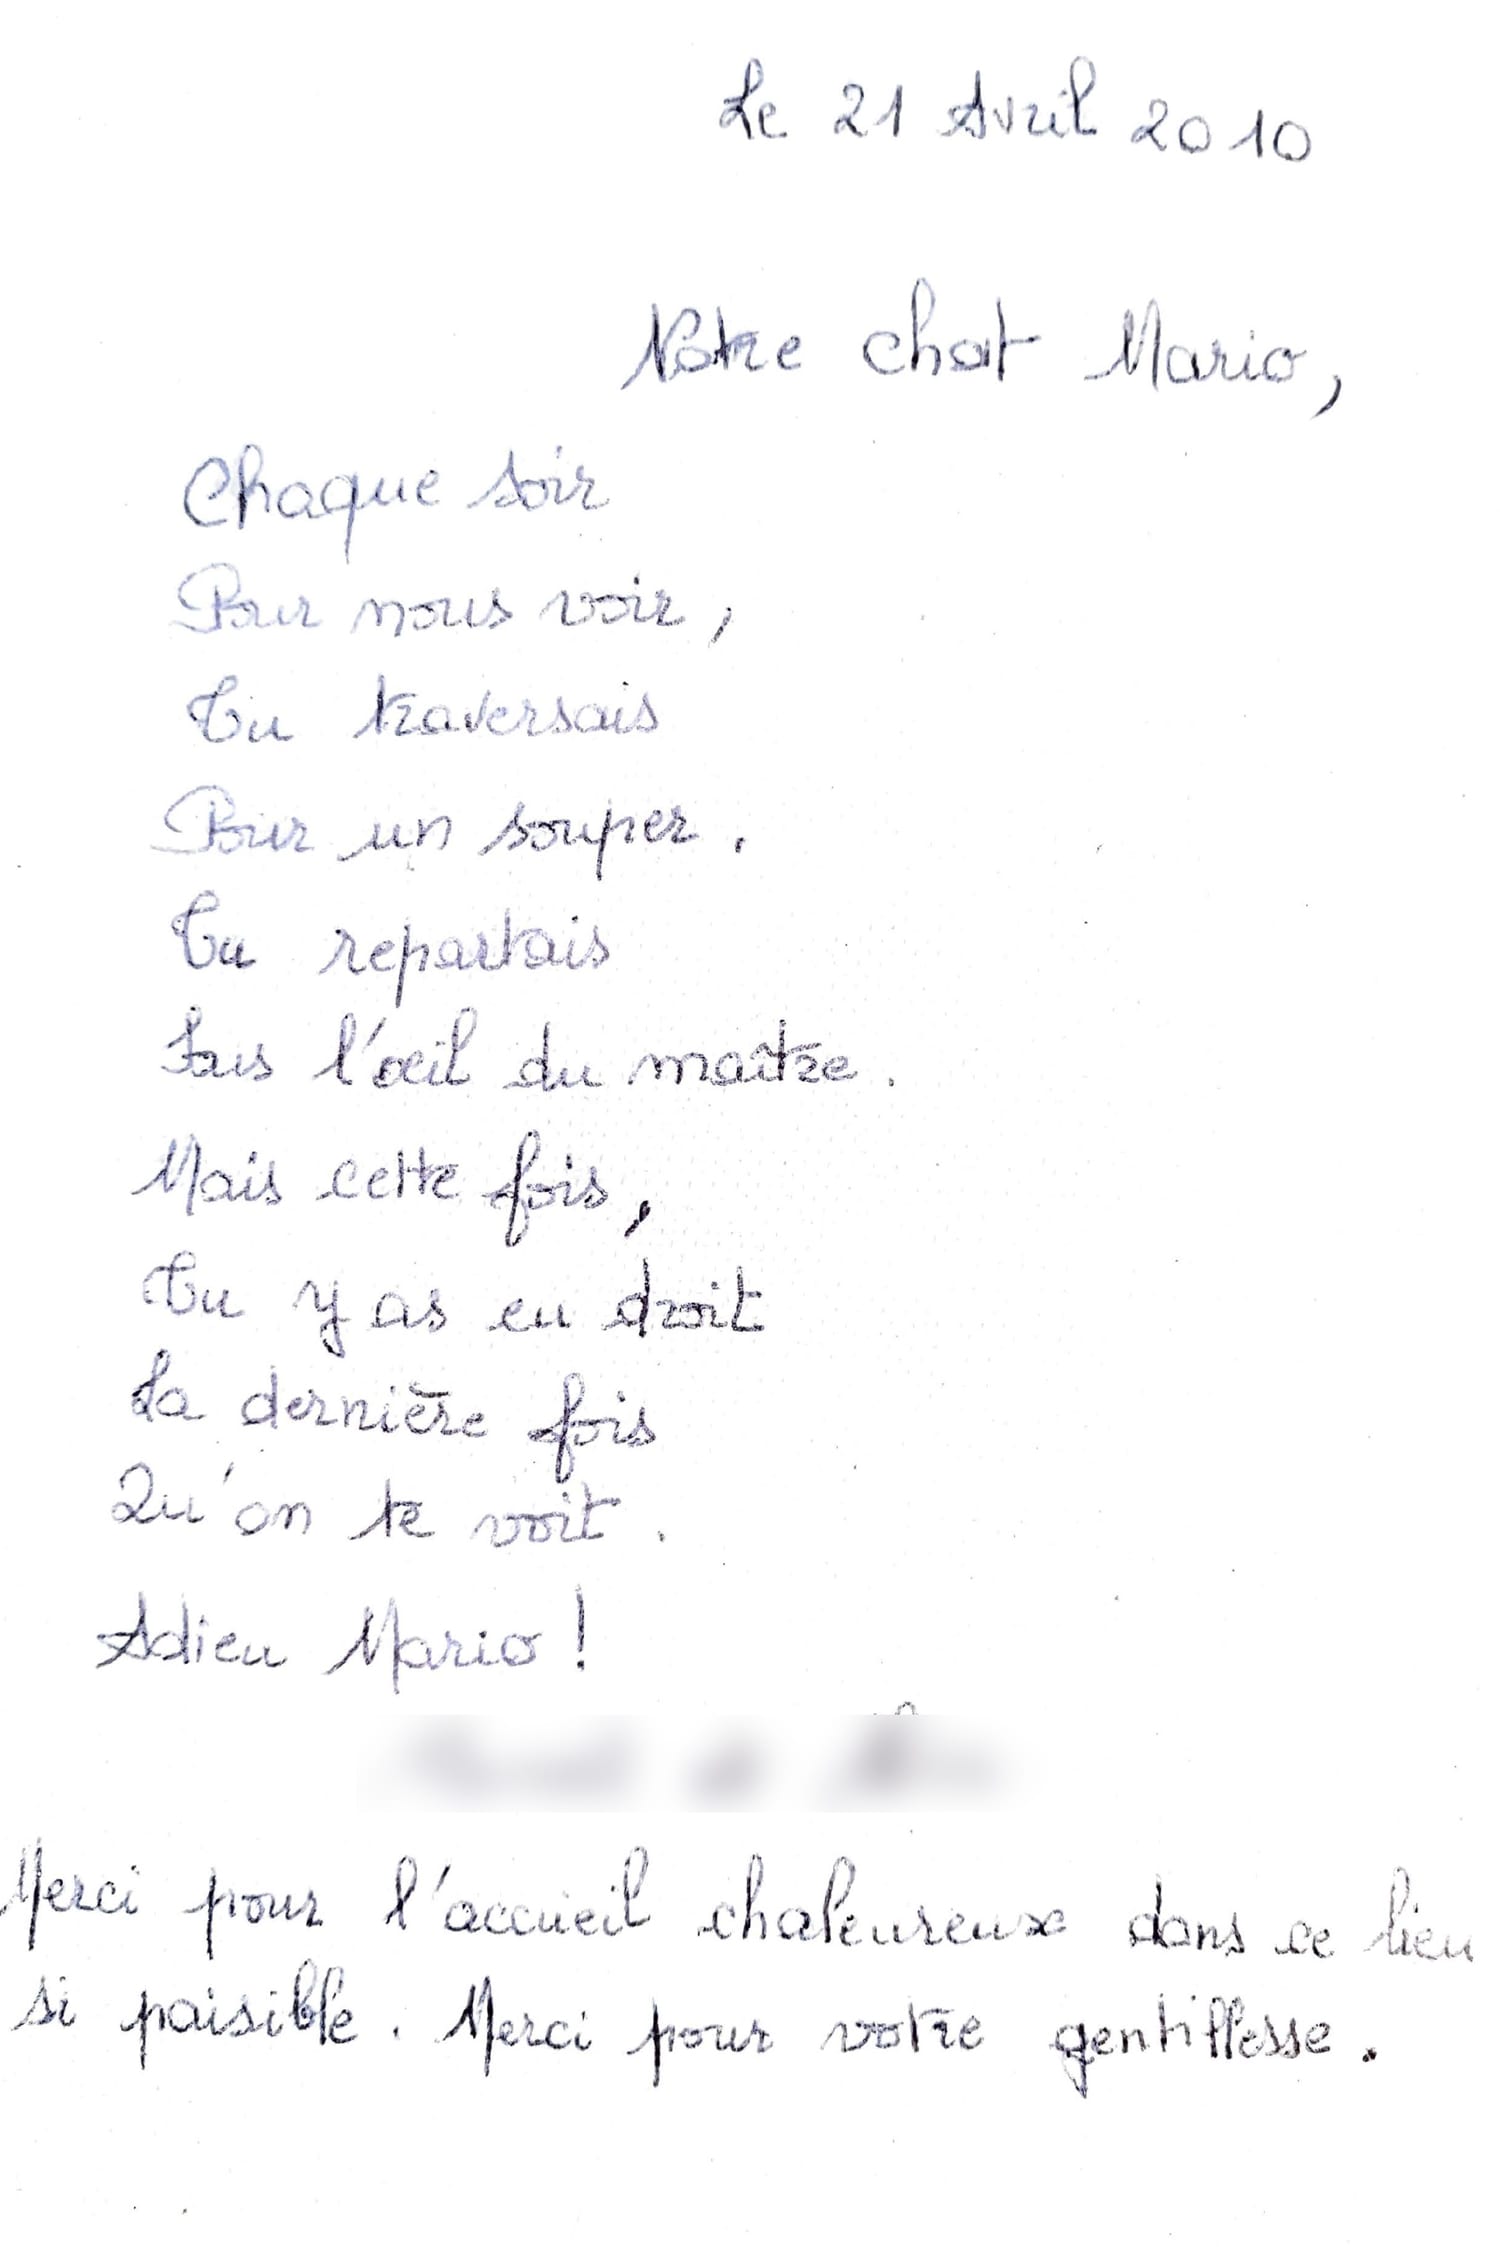 Le 21 Avril 2010
Notre chat Mario,
Chaque soir
Pour nous voir,
Tu traversais
Pour un souper.
Tu repartais
Sous l'oeil du maître.
Mais cette fois,
Tu y as eu droit
La dernière fois
Qu'on te voit.
Adieu Mario!
Merci pour l'accueil chaleureux dans ce lieu
si paisible. Merci pour votre gentillesse.